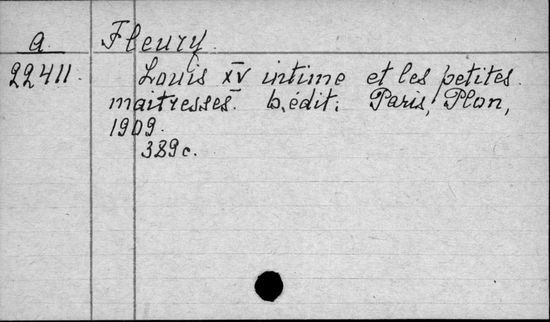 a
Fleury.
22411.
Louis XV intime et les petites
maitresses. 6. édit. Paris, Plon,
1909.
389c.